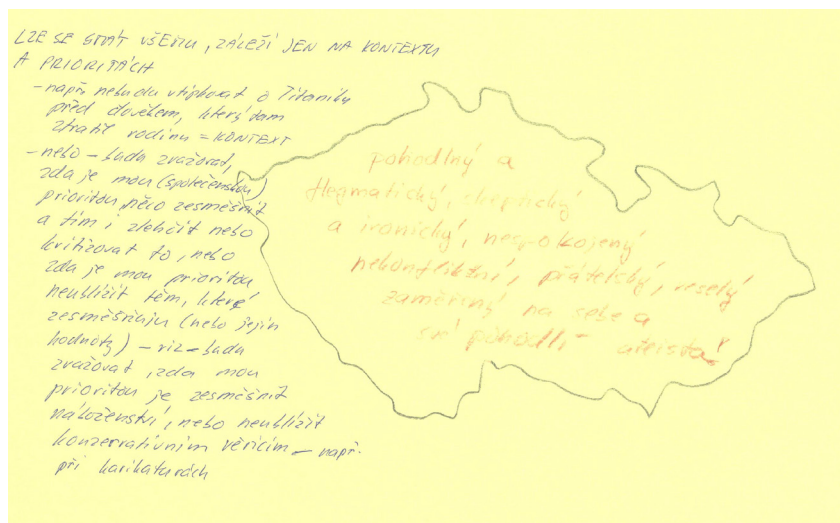 LZE SE SMÁT VŠEMU, ZÁLEŽÍ JEN NA KONTEXTU
A PRIORITÁCH
- např. nebudu vtipkovat o Titaniku
před člověkem, který tam
ztratil rodinu = KONTEXT
- nebo - budu zvažovat,
zda je mou (společenskou)
prioritou něco zesměšnit
a tím i zlehčit nebo
kritizovat to, nebo
zda je mou prioritou
neublížit těm, které
zesměšňuju (nebo jejich
hodnoty) - viz - budu
zvažovat, zda mou
prioritou je zesměšnit
náboženství, nebo neublížit
konzervativním věřícím - např.
při karikaturách
pohodlný a
flegmatický, skeptický
a ironický, nespokojený
nekonfliktní, přátelský, veselý
zaměřený na sebe a
své pohodlí - ateista!